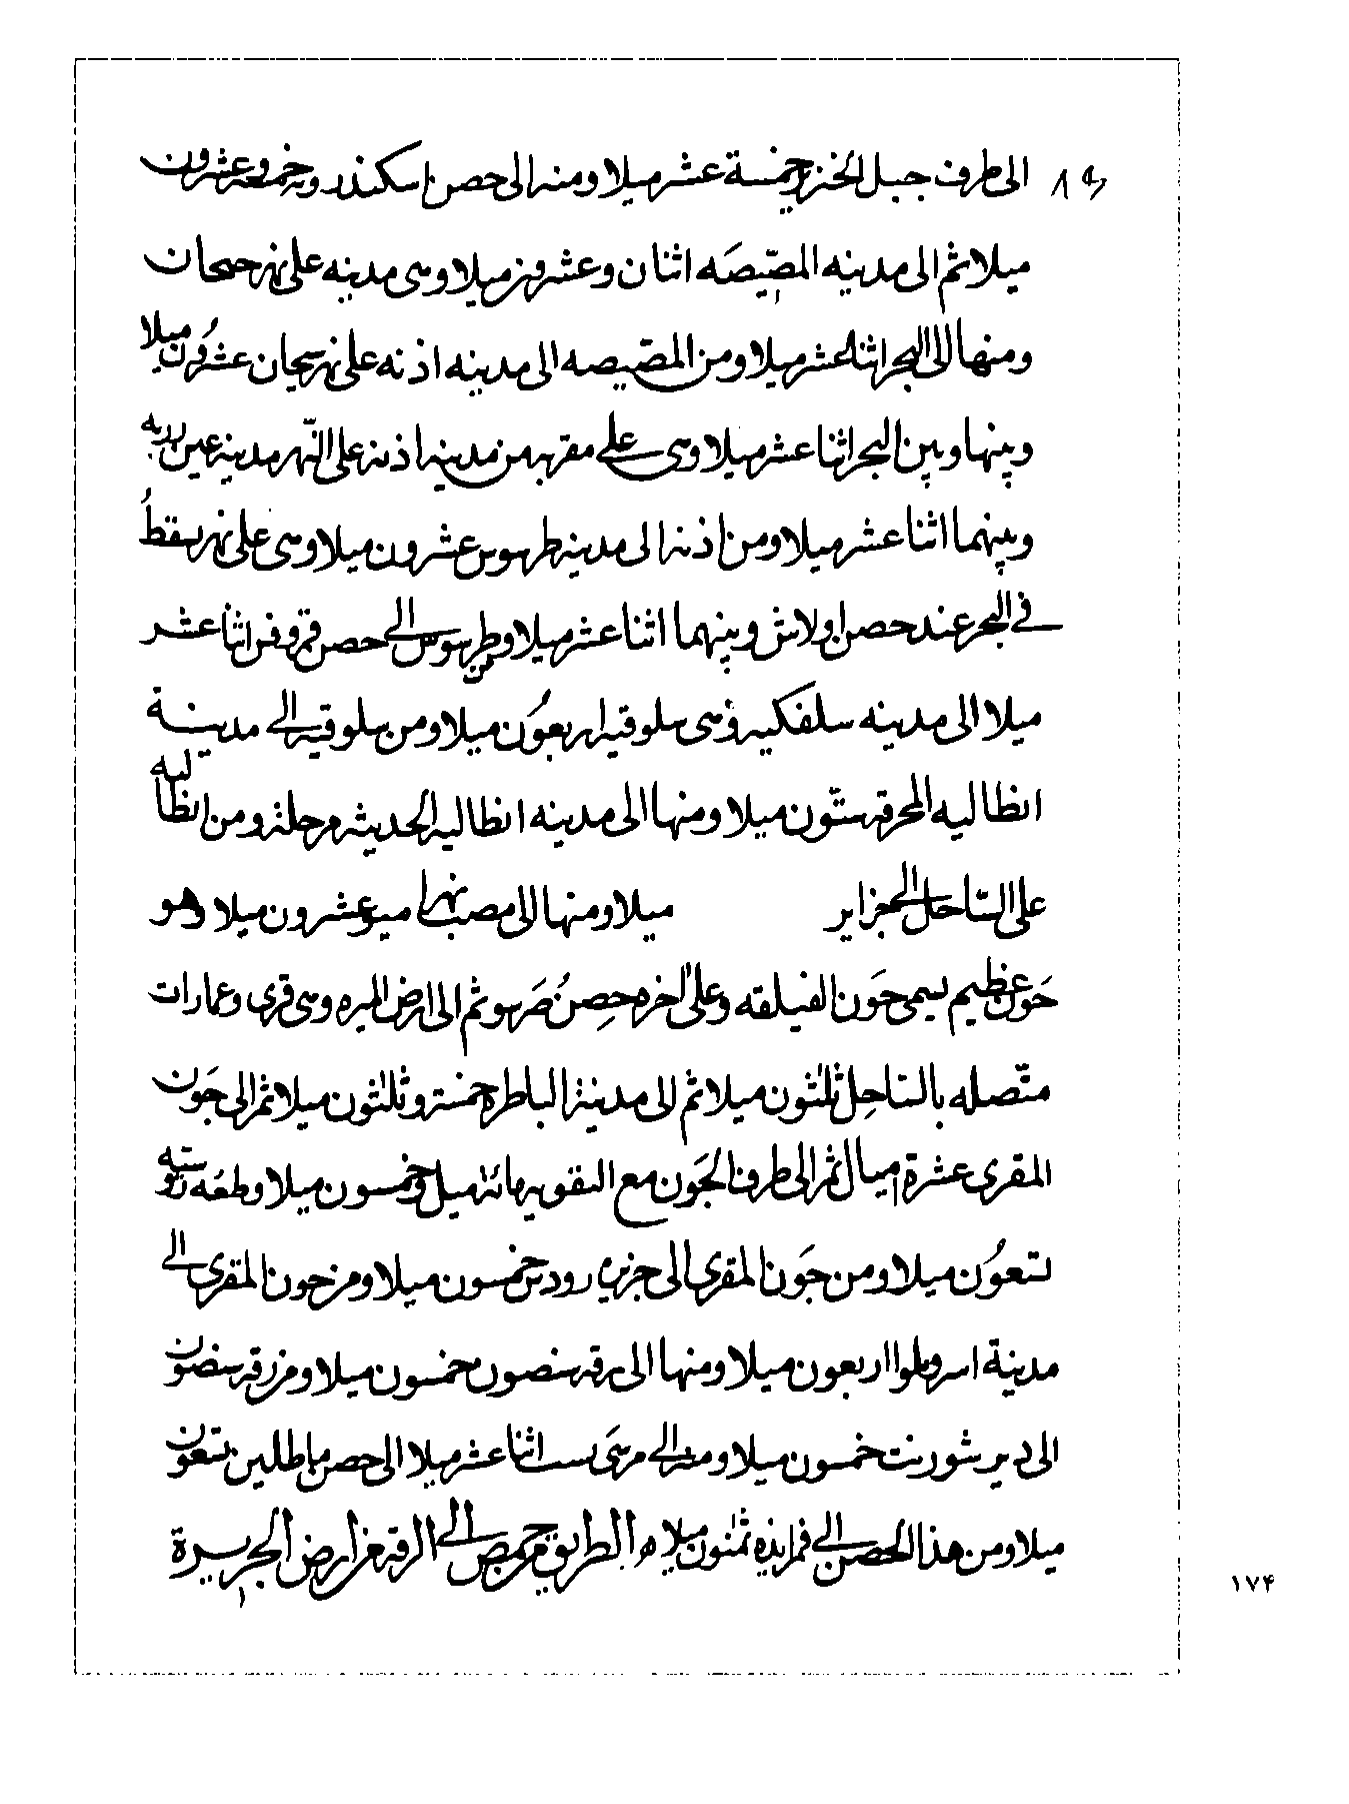 الى طرف جبل الخنزير خمسة عشر ميلا ومنه الى حصن اسكندرونه خمسه وعشرون
ميلا ثم الى مدينه المصّيصَه اثنان وعشرون ميلا وهى مدينه على نهر جيحان
ومنها الى البحر اثنا عشر ميلا ومن المصّيصه الى مدينه اذنه على نهر سيحان عشرُون ميلا
وبينها وبين البحر اثنا عشر ميلا وهى على مقربه من مدينه اذنه على النّهر مدينه عين زربه
وبينهما اثنا عشر ميلا ومن اذنه الى مدينه طرسوس عشرون ميلا وهى على نهر يسقطُ
فى البحر عند حصن اولاش وبينهما اثنا عشر ميلا ومن طرسوس الى حصن قرقوفس اثنا عشر
ميلا الى مدينه سلفكيه وهى سلوقيه اربعُون ميلا ومن سلوقيه الى مدينة
انطاليه المحرقه ستّون ميلا ومنها الى مدينه انطاليه الحديثه مرحلة ومن انطاليه
على السّاحل الى جزاير ميلا ومنها الى مصب نهر عشرون ميلا وهو
جَون عظيم يسمى جَون الفيلقه وعلى اخره حِصنُ ثم الى ارض الميره وهى قرى وعمارات
متّصله بالسّاحِل ثلثون ميلا ثم الى مدينة الباطره خمسة وثلثون ميلا ثم الى جَون
المقرى عشرة اميال ثم الى طرف الجَون مع التقوير مائة ميل وخمسون ميلا وقطعُه روسيّه
تسعُون ميلا ومن جَون المقرى الى جزيره رودس خمسون ميلا ومن جون المقرى الى
مدينة اربعون ميلا ومنها الى خمسون ميلا ومن
الى دير خمسون ميلا ومنه الى مرسَى اثنا عشر ميلا الى حصن تسعون
ميلا ومن هذا الحصن الى فم ابذه ثمنون ميلا ه الطريق من حمص الى الرقه من ارض الجزيرة
١٧۴